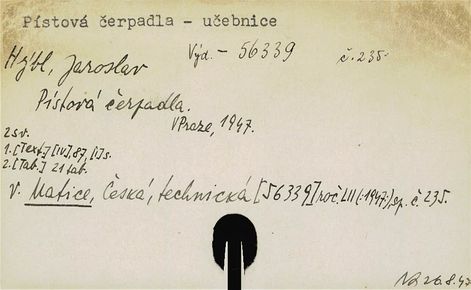 Pístová čerpadla - učebnice
Výd. - 56339 č. 235.
Hýbl, Jaroslav
Pístová čerpadla.
V Praze, 1947.
2 sv.
1. [Text.] [IV], 87, [I] s.
2. [Tab.] 21 tab.
v. Matice, Česká, technická [56339] roč. LII (:1947:), sp. č. 235.
26.8.47